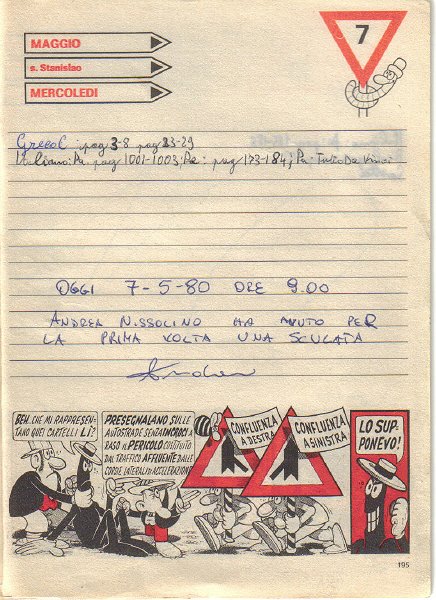 MAGGIO
s. Stanislao
MERCOLEDI
7
Greco: pag 3-8 pag 23-29
Italiano: Pr. pag 1001-1003; Re: pag 173-184; Pr: Tutto Da Vinci
OGGI 7-5-80 ORE 9.00
ANDREA NISSOLINO HA AVUTO PER
LA PRIMA VOLTA UNA SCULATA
BEH, CHE MI RAPPRESEN-
TANO QUEI CARTELLI LÌ?
PRESEGNALANO SULLE
AUTOSTRADE SENZA INCROCI A
RASO IL PERICOLO COSTITUITO
DAL TRAFFICO AFFLUENTE DALLE
CORSIE LATERALI DI ACCELERAZIONE
CONFLUENZA
A DESTRA
CONFLUENZA
A SINISTRA
LO SUP-
PONEVO!
195